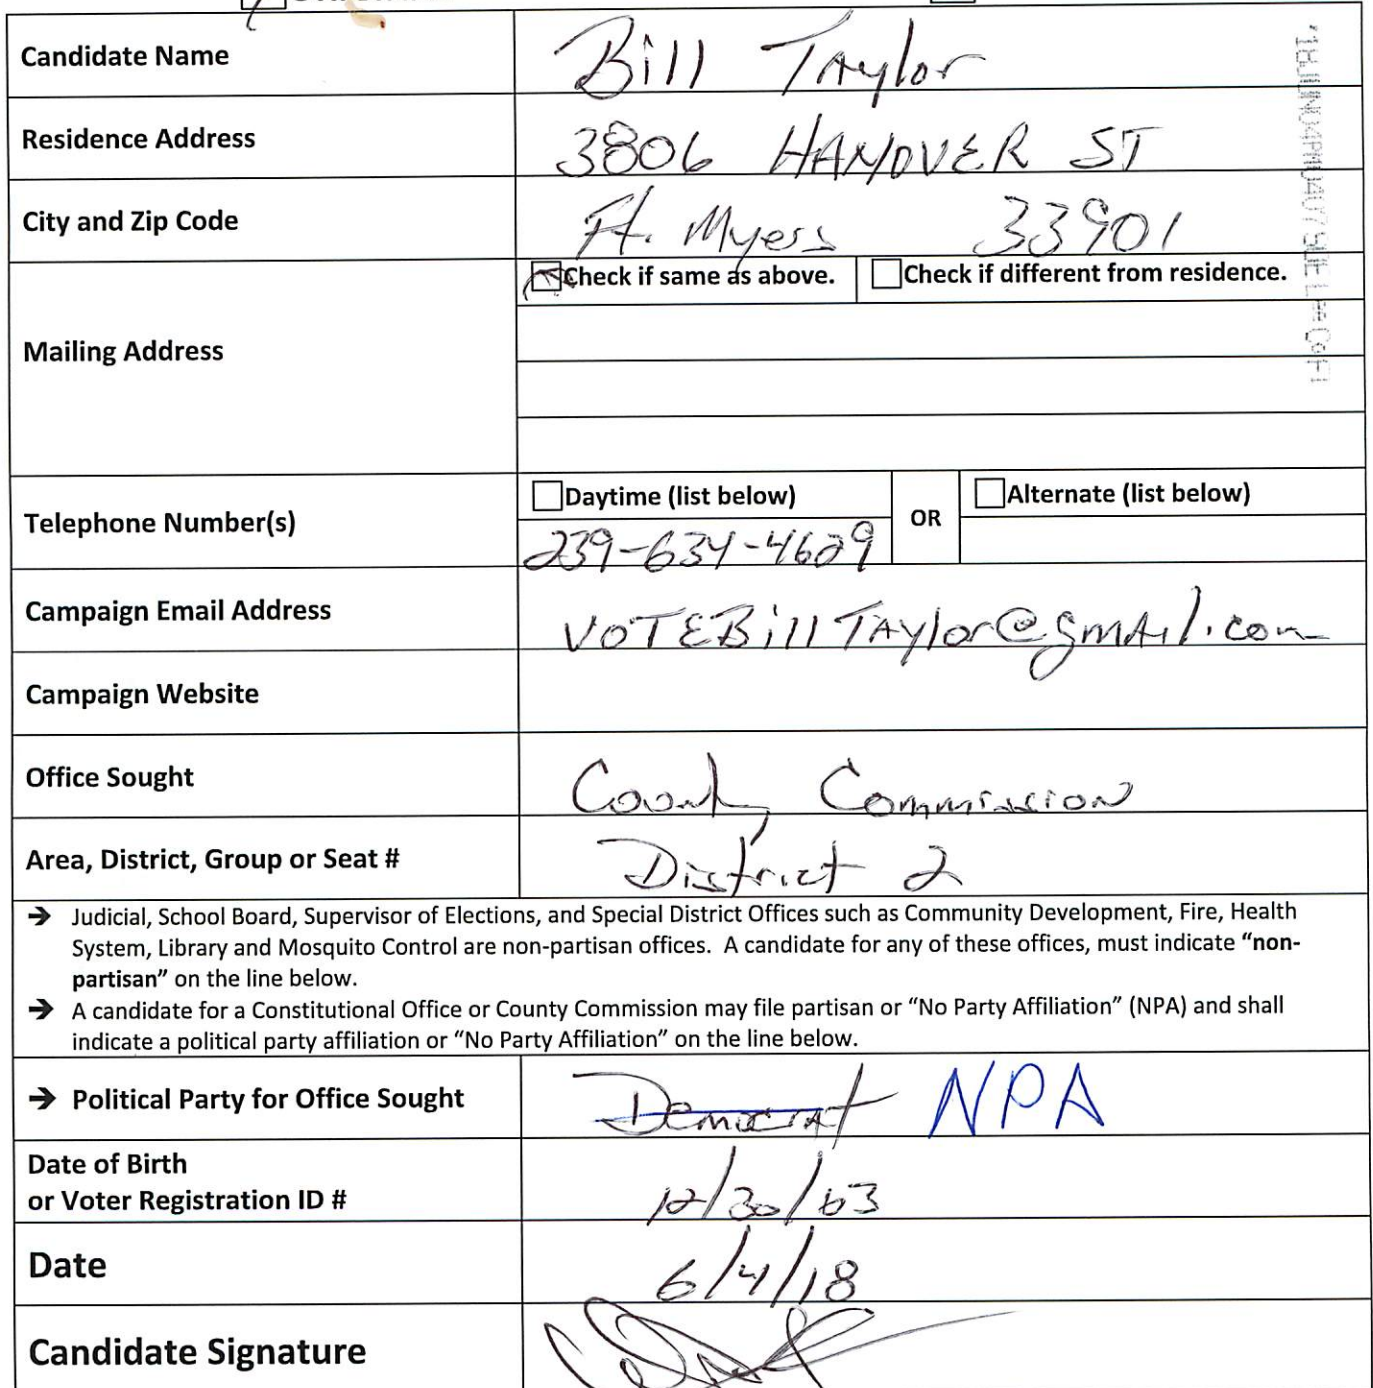 Candidate Name Bill Taylor
Residence Address 3806 HANOVER ST
City and Zip Code Ft. Myers 33901
Check if same as above. Check if different from residence.
Mailing Address
Daytime (list below) OR Alternate (list below)
Telephone Number(s)
239-634-4629
Campaign Email Address VOTEBillTAylor@gmAil.com
Campaign Website
Office Sought County Commission
Area, District, Group or Seat # District 2
→ Judicial, School Board, Supervisor of Elections, and Special District Offices such as Community Development, Fire, Health
System, Library and Mosquito Control are non-partisan offices. A candidate for any of these offices, must indicate “non-
partisan” on the line below.
→ A candidate for a Constitutional Office or County Commission may file partisan or “No Party Affiliation” (NPA) and shall
indicate a political party affiliation or “No Party Affiliation” on the line below.
→ Political Party for Office Sought Democrat NPA
Date of Birth
or Voter Registration ID # 12/30/63
Date 6/4/18
Candidate Signature